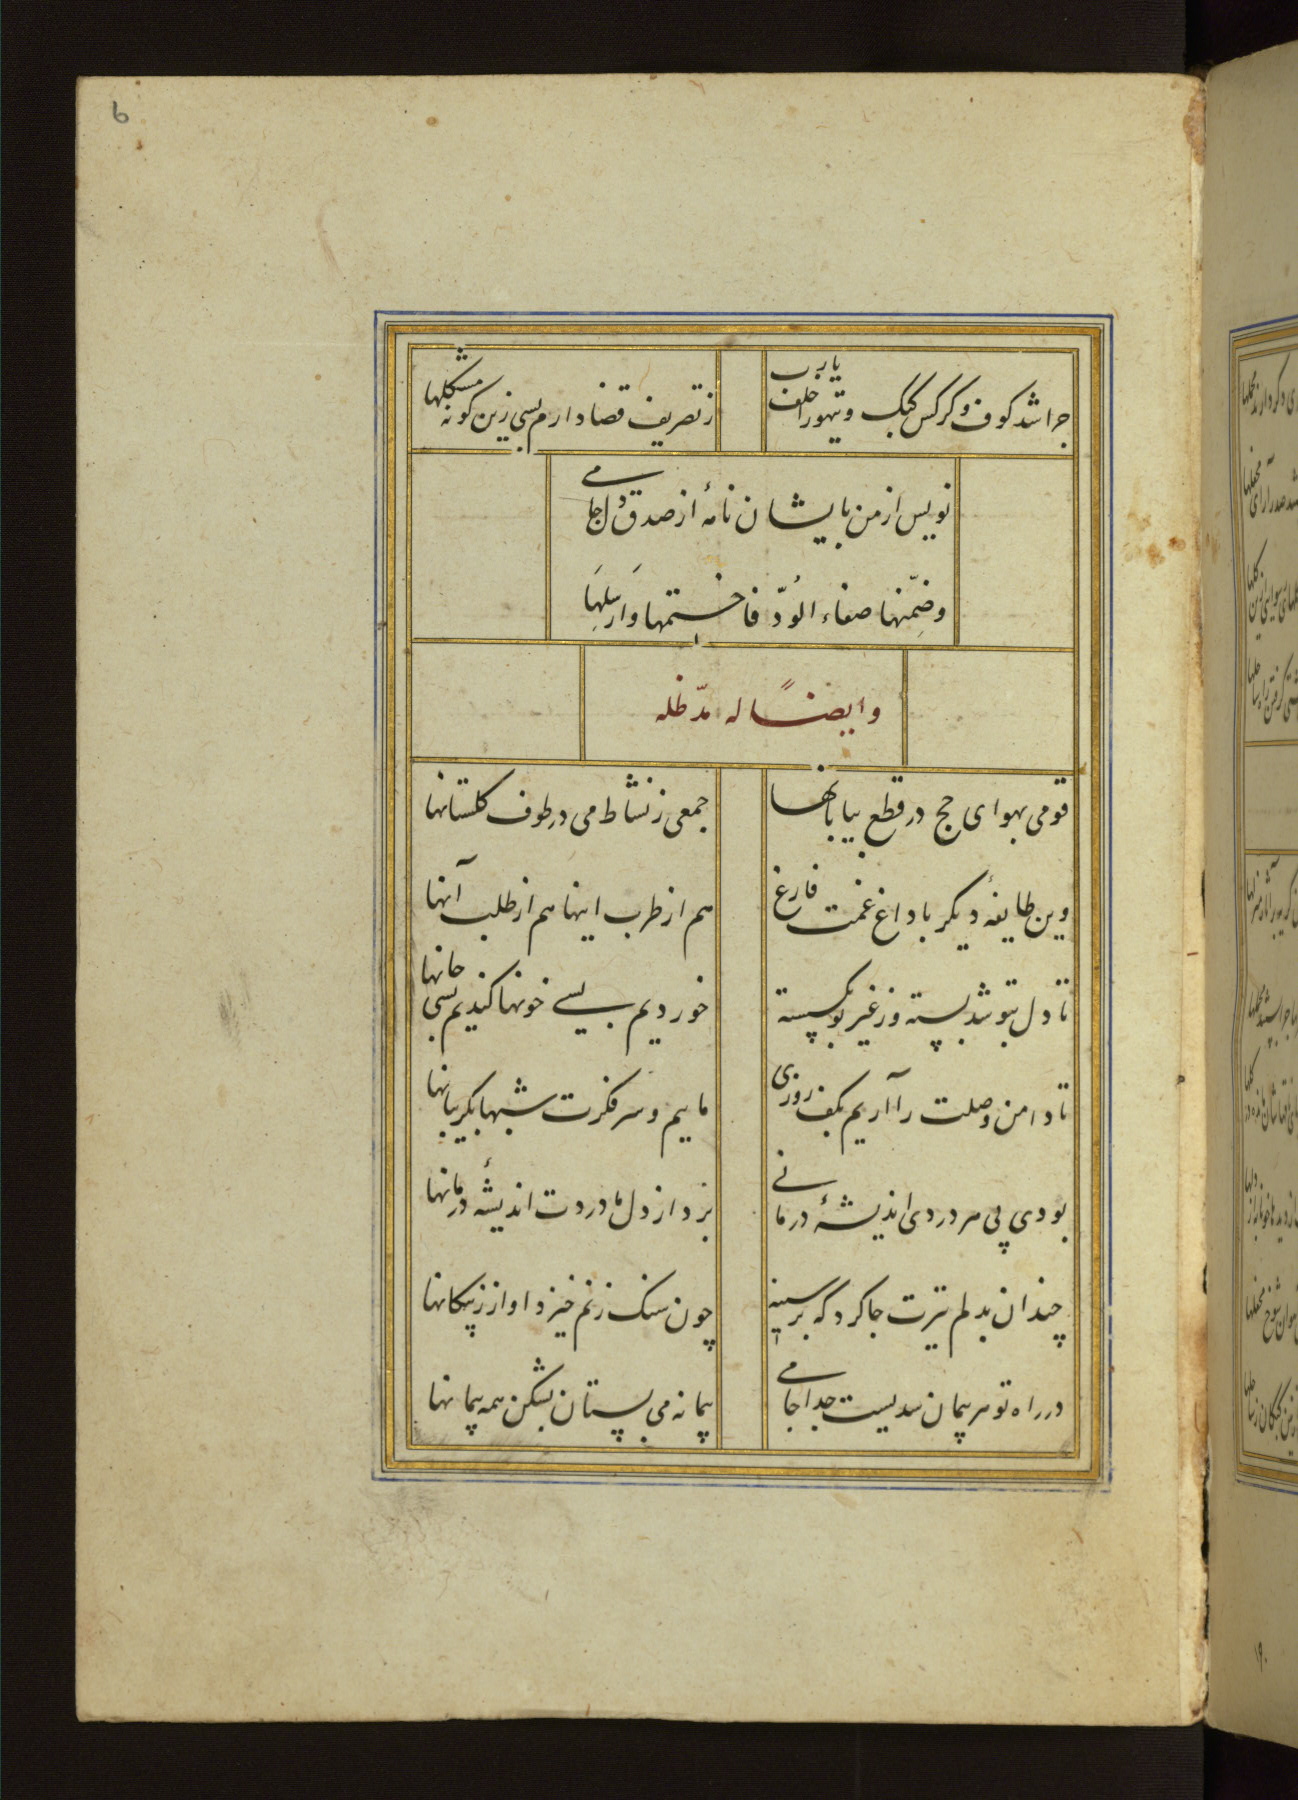 چرا شد کوف و کرکس کبک و تیهو را خلف یارب
ز تصریف قضا دارم بسی زین کونه مشکلها
نویس از من بایشان نامهٔ از صدق دل جامی
وضمّنها صفاء الوُدّ فاختمها وارسلها
وایضاً له مدّ ظله
قومی بهوای حج در قطع بیابانها
جمعی ز نشاط می در طوف کلستانها
وین طایفهٔ دیکر با داغ غمت فارغ
هم از طرب اینها هم از طلب آنها
تا دل بتو شد بسته وز غیر تو بکسسته
خوردیم بسی خونها کندیم بسی جانها
تا دامن وصلت را آریم بکف روزی
ماییم و سر فکرت شبها بکریبانها
بودی پی هر دردی اندیشهٔ درمانی
بزد از دل ما دردت اندیشهٔ درمانها
چندان بدلم تیرت جا کرد که بر سینه
چون سنک زنم خیزد اواز ز پیکانها
در راه تو هر پیمان سدیست جدا جامی
پیمانه می بستان بشکن همه پیمانها
6
۱۹۰